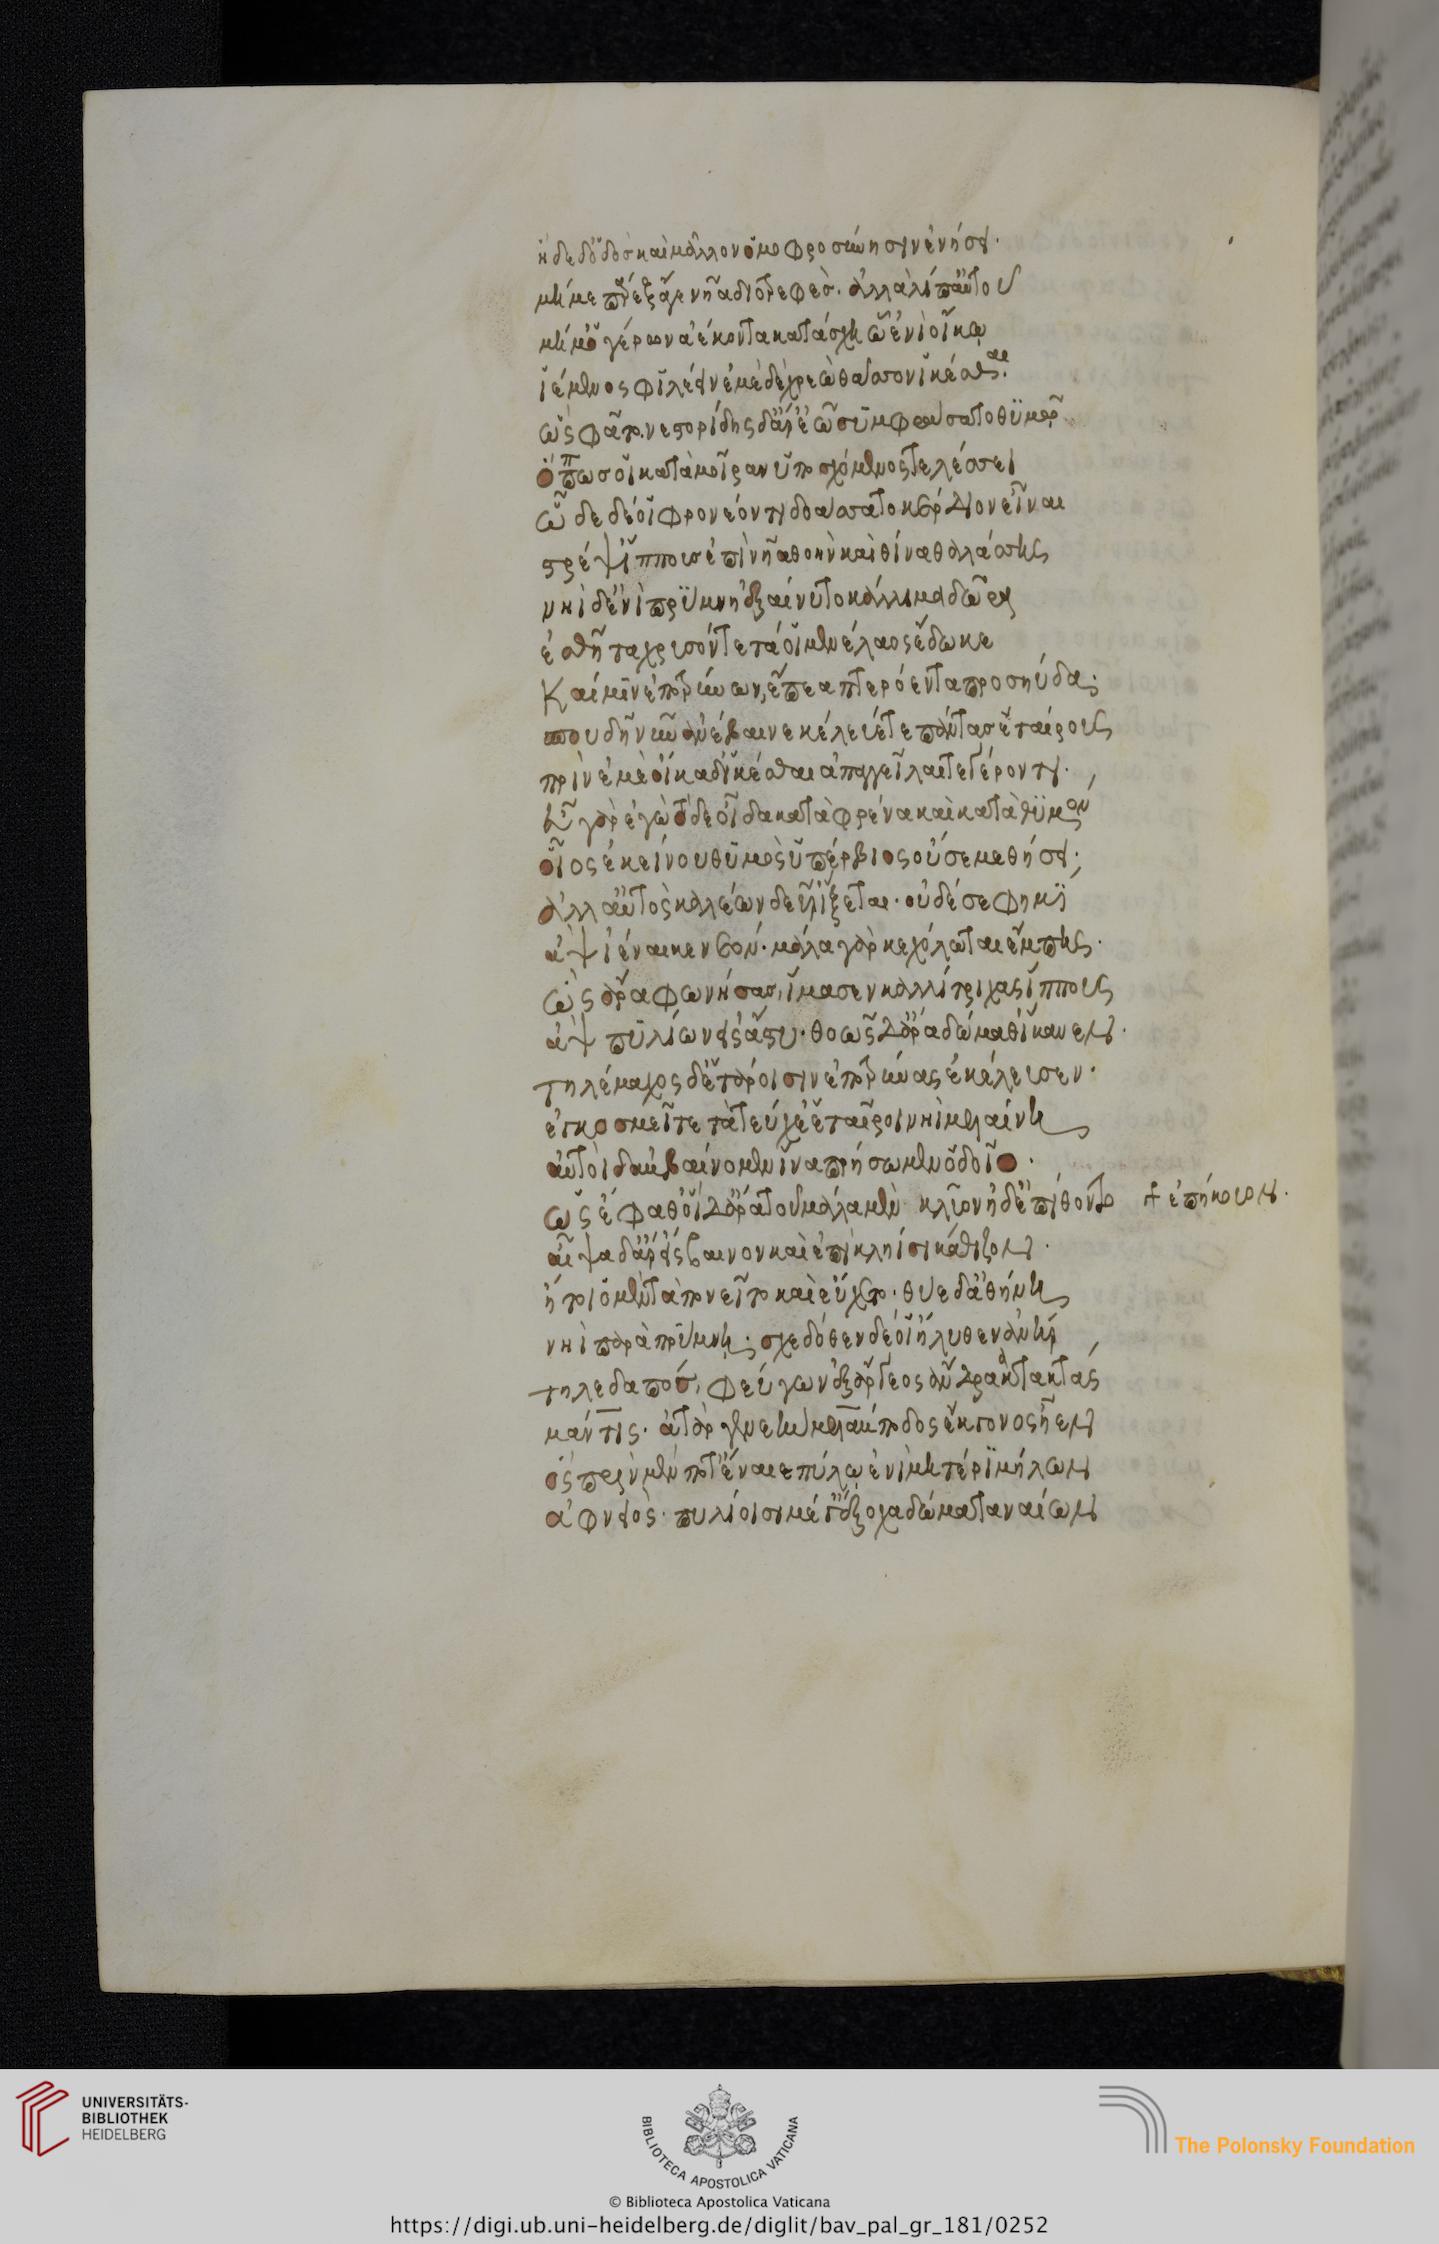 ἡδεδ' ὁδὸς καὶ μᾶλλον ὁμοφροσύνῃσιν ἐνήσει·
μή με παρὲξ ἄγε νῆα διοτρεφές. ἀλλὰ λίπ' αὐτοῦ
μή μ' ὁ γέρων ἀέκοντα κατάσχῃ ᾧ ἐνὶ οἴκῳ
ἱέμενος φιλέειν ἐμὲ δὲ χρεὼ θᾶσσον ἱκέσθαι.
ὣς φάτο. νεστορίδης δ' ἄρ' ἑῷ συμφράσσατο θυμῷ
ὅππως οἱ κατὰ μοῖραν ὑποσχόμενος τελέσσει
ὧδε δέ οἱ φρονέοντι δοάσσατο κέρδιον εἶναι
στρέψ' ἵππους ἐπὶ νῆα θοὴν καὶ θῖνα θαλάσσης
νηὶ δ' ἐνὶ πρύμνῃ ἐξαίνυτο κάλλιμα δῶρα
ἐσθῆτα χρυσόν τε τά οἱ μενέλαος ἔδωκε
Καί μιν ἐποτρύνων, ἔπεα πτερόεντα προσηύδα·
σπουδῇ νῦν ἀνέβαινε κέλευέ τε πάντας ἑταίρους
πρὶν ἐμὲ οἴκαδ' ἱκέσθαι ἀπαγγεῖλαί τε γέροντι.
εὖ γὰρ ἐγὼ τόδε οἶδα κατὰ φρένα καὶ κατὰ θυμόν
οἷος ἐκείνου θυμὸς ὑπέρβιος οὔ σε μεθήσει·
ἀλλ' αὐτὸς καλέων δεῦρ' ἵξεται. οὐδέ σέ φημι
ἂψ ἰέναι κενεόν. μάλα γὰρ κεχόλωται ἔμπης.
ὣς ἄρα φωνήσας, ἵμασεν καλλίτριχας ἵππους
ἂψ πυλίων εἰς ἄστυ. θοῶς δ' ἄρα δώμαθ' ἵκανεν.
τηλέμαχος δ' ἑτάροισιν ἐποτρύνας ἐκέλευσεν.
ἐγκοσμεῖτε τὰ τεύχε' ἑταῖροι νηὶ μελαίνῃ
αὐτοί δ' ἀμβαίνομεν ἵνα πρήσωμεν ὁδοῖο.
ὣς ἔφαθ' οἱ δ' ἄρα τοῦ μάλα μὲν κλύον ἠδ' ἐπίθοντο + ἐπήκουσαν.
αἶψα δ' ἄρ' εἴσβαινον καὶ ἐπὶ κληῖσι κάθιζον.
ἤτοι ὁ μὲν τὰ πονεῖτο καὶ εὔχετο. θύε δ' ἀθήνῃ
νηὶ παρὰ πρύμνῃ· σχεδόθεν δέ οἱ ἤλυθεν ἀνήρ
τηλεδαπός, φεύγων ἐξ ἄργεος ἄνδρα κατακτάς
μάντις. ἀτὰρ γενεὴν μελάμποδος ἔκγονος ἦεν
ὃς πρὶν μὲν ποτ' ἔναιε πύλῳ ἐνὶ μητέρι μήλων
ἀφνειός. πυλίοισι μέγ' ἔξοχα δώματα ναίων
UNIVERSITÄTS-
BIBLIOTHEK
HEIDELBERG
BIBLIOTECA APOSTOLICA VATICANA
The Polonsky Foundation
© Biblioteca Apostolica Vaticana
https://digi.ub.uni-heidelberg.de/diglit/bav_pal_gr_181/0252